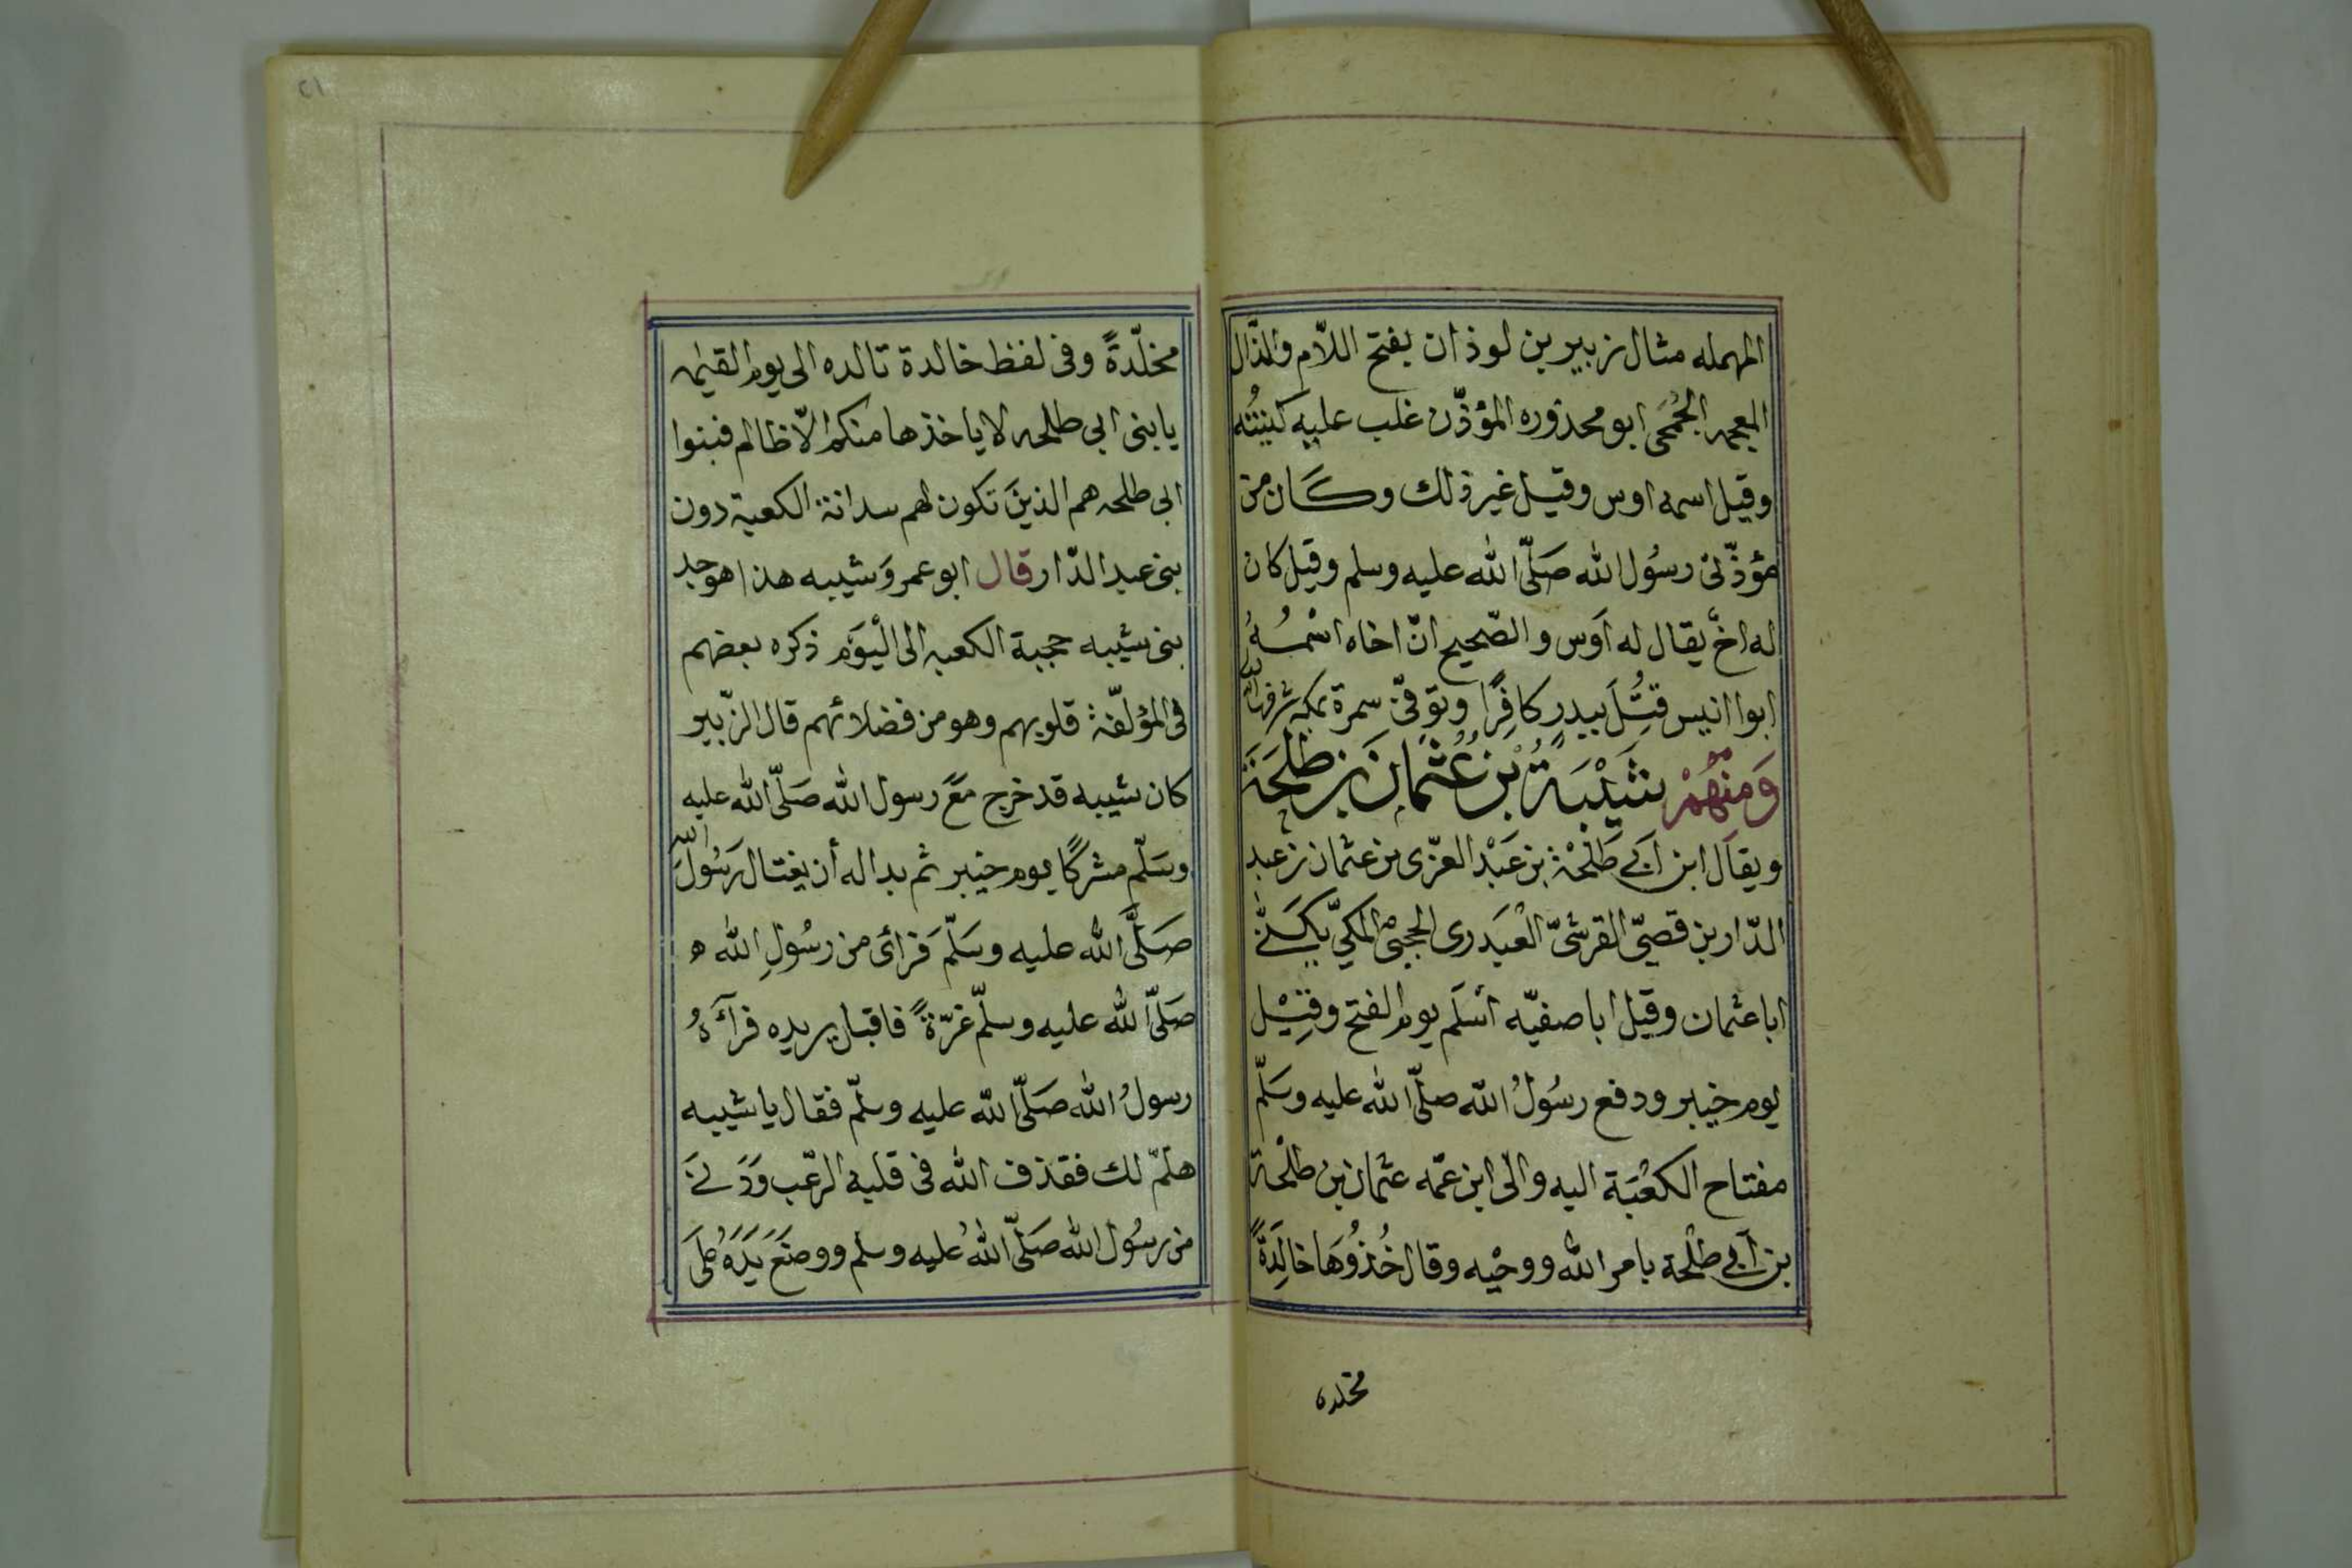 المهمله مثال زبير بن لوذان بفتح اللّام والذّال
المعجمه الجُمَحى ابو محذوره المؤذّن غلب عليه كنيتُه
وقيل اسمه اوس وقيل غير ذلك وكان من
مؤذّنى رسُول الله صَلّى الله عليه وسلم وقيل كان
له اخٌ يقال له اَوس والصّحيح انّ اخاه اسْمُـهُ
ابوا انيس قتُِلَ ببدرٍ كافِرًا وتوفىّ سمرة بمكه شرفها الله
وَمِنْهُمْ شَيْبَةُ بْنُ عُثمَانَ بن طَلْحَة
ويقَال ابن اَبى طَلْحَة بن عَبْد العزّى بن عثمان بن عبد
الدّار بن قصىّ القرشىّ العَبْدَرى الحجبىّ المكىّ يكنى
ابا عثمان وقيل ابا صفيّه اَسْلَم يوم الفتح وقِيْل
يوم خيبر ودفع رسُولُ الله صلّى الله عليه وسَلّم
مفتاح الكَعْبَة اليه والى ابن عمّه عثمان بن طلْحَة
بن اَبى طلْحة بامر الله ووحْيه وقال خُذوُهَا خالِدَةً
مخلده
٢١
مخلّدةً وفى لفظ خالدة تالده الى يوم القيٰمه
يا بنى ابى طلحه لا ياخذها منكم الّا ظالم فبنوا
ابى طلحه هم الذينَ تكون لهم سدانة الكعبة دون
بنى عبد الدّار قال ابو عمر وَشيبه هذا هو جد
بنى شيبه حجبة الكعبه الى الْيَوَم ذكره بعضهم
فى المؤلفّة قلوبهم وهو من فضلائهم قال الزّبير
كان شيبه قد خرج مَعَ رسول الله صَلّى الله عليه
وسَلّم مشركًا يوم خيبر ثم بدا له أن يغتال رَسُولَ الله
صَلَّى الله عليه وسَلّم فَرأى من رسُولِ الله ه
صَلّى الله عليه وسلّم غرّةً فاقبل يريده فرآهُ
رسولُ الله صَلّى الله عليه وسلّم فقال يا شيبه
هلمّ لك فقذف الله فى قلبه الرّعب وَدَنَى
من رسُول الله صَلّى اللهُ عليه وسلم ووضَعَ يَدَهُ عَلىَ